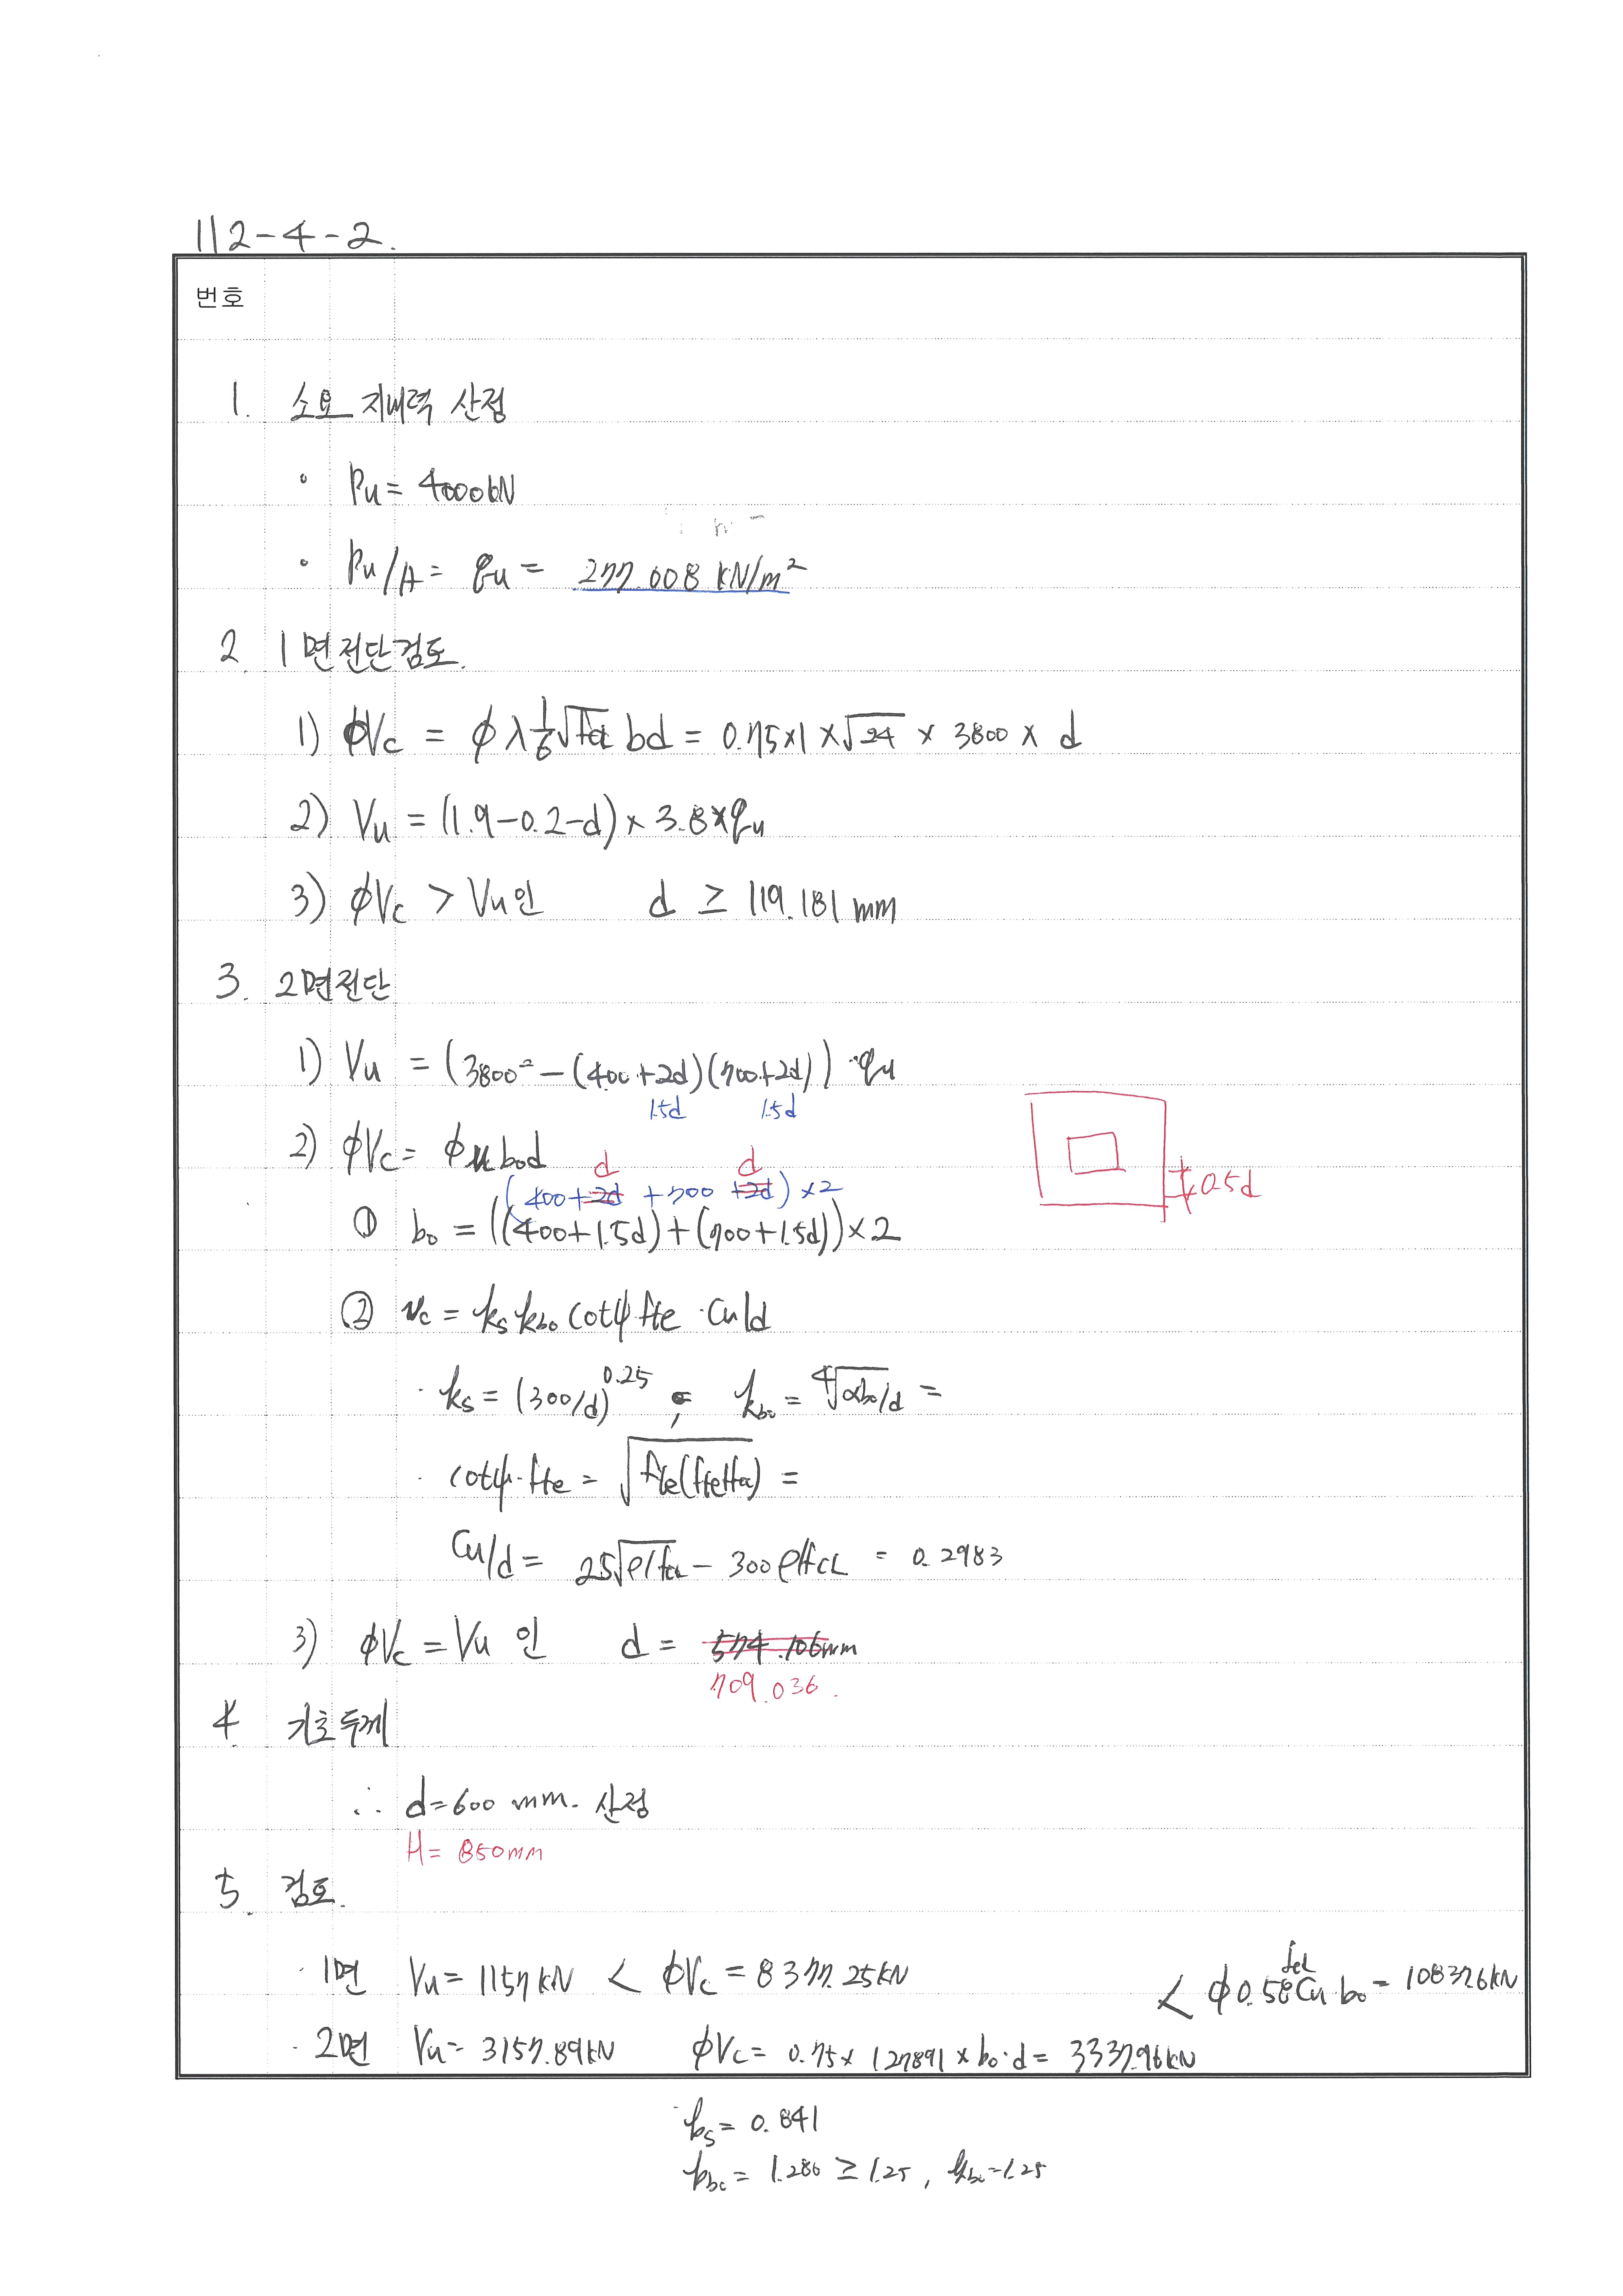 112-4-2.
번호
1. 소요 지내력 산정
• Pu = 4000kN
• Pu/A = qu = 277.008 kN/m²
2 1면전단검토.
1) φVc = φλ 1/6 √fck bd = 0.75×1×√24 × 3800 × d
2) Vu = (1.9-0.2-d)×3.8×qu
3) φVc > Vu인 d ≥ 119.181 mm
3. 2면전단
1) Vu = (3800² - (400+2d)(700+2d)) · qu
1.5d 1.5d
2) φVc = φ bod
d d
(400+2d +700 +2d)×2
① bo = ((400+1.5d)+(700+1.5d))×2
0.5d
② vc = ks kbo cotψ fte · Cu/d
· ks = (300/d)^0.25 , kbo = ∜αbo/d =
· cotψ·fte = √fte(fte+fck) =
Cu/d = 25√ρ/fck - 300ρ/fck = 0.2983
3) φVc = Vu 인 d = 574.106mm
709.036.
4 기초두께
∴ d=600 mm. 산정
H = 850mm
5. 검토.
· 1면 Vu = 1157kN < φVc = 8377.25kN
< φ0.58 fck Cu bo = 10837.6kN
· 2면 Vu = 3157.89kN φVc = 0.75× 1.27891 × bo·d = 3337.96kN
ks = 0.841
kbo = 1.286 ≥ 1.25 , kbo=1.25